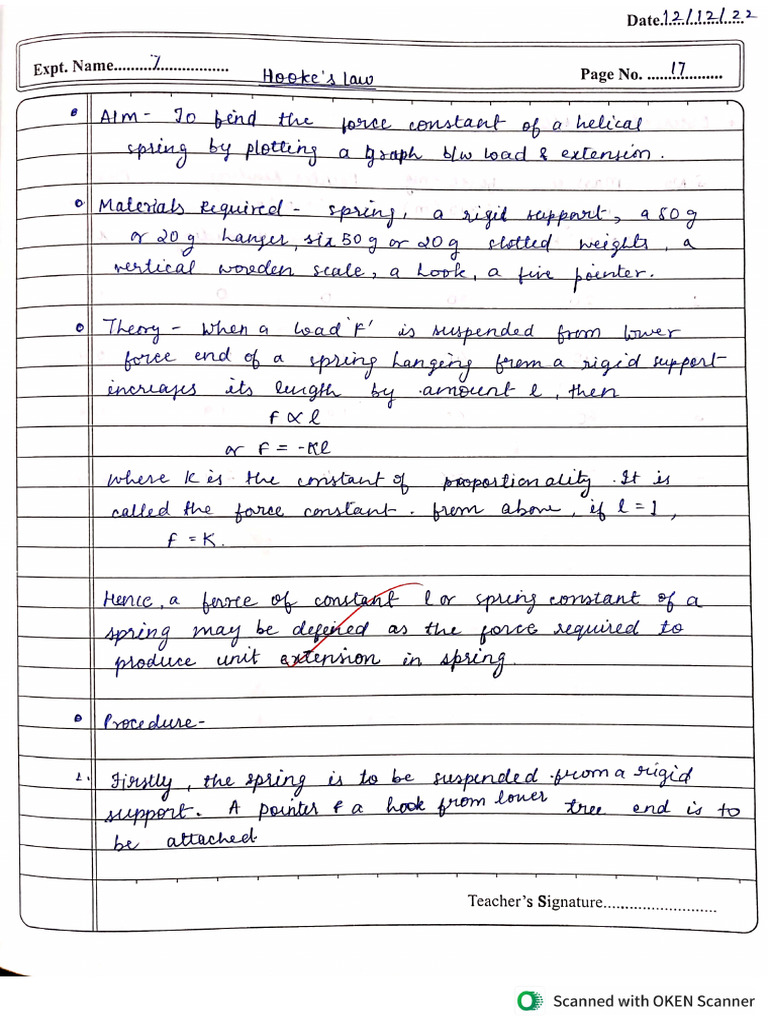 Date.12/12/22
Expt. Name.........7................
Hooke's Law
Page No. ......17..........
Aim - To find the force constant of a helical
spring by plotting a graph b/w load & extension.
Materials Required - spring, a rigid support, a 50 g
or 20 g hanger, six 50 g or 20 g slotted weights, a
vertical wooden scale, a hook, a fine pointer.
Theory - When a load 'F' is suspended from lower
force end of a spring hanging from a rigid support
increases its length by amount l, then
F ∝ l
or F = -Kl
where K is the constant of proportionality. It is
called the force constant. From above, if l = 1,
F = K.
Hence, a force of constant l or spring constant of a
spring may be defined as the force required to
produce unit extension in spring.
Procedure -
1. Firstly, the spring is to be suspended from a rigid
support. A pointer & a hook from lower tree end is to
be attached.
Teacher's Signature..........................
Scanned with OKEN Scanner